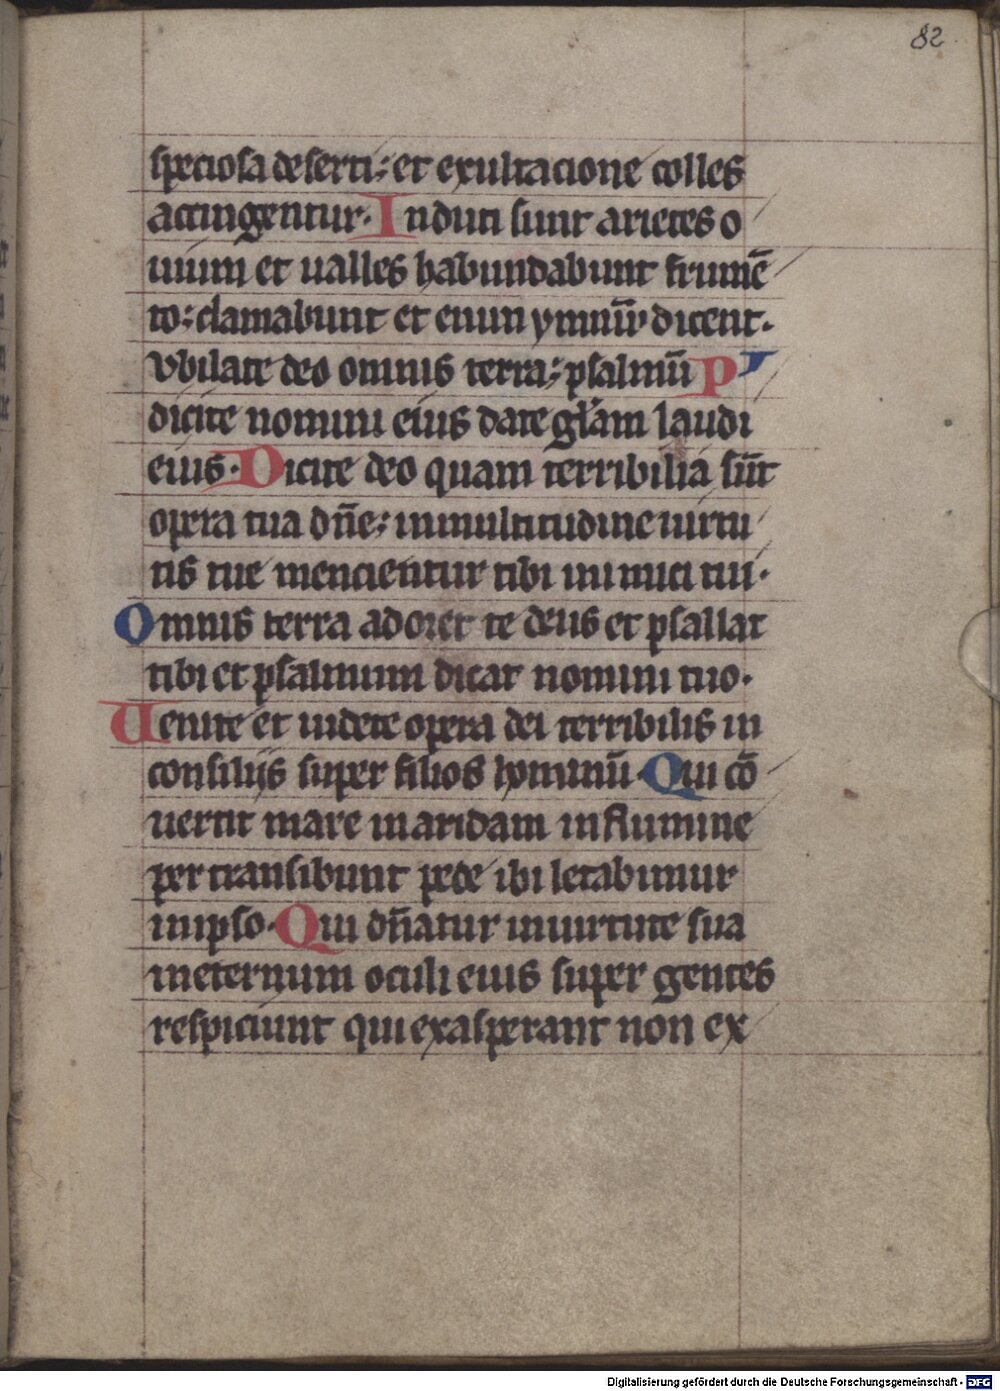 82
speciosa deserti: et exultacione colles
accingentur. Induti sunt arietes o
uium et ualles habundabunt frumē
to: clamabunt et enim ymnū dicent.
vbilate deo omnis terra: psalmū p
dicite nomini eius date glām laudi
eius. Dicite deo quam terribilia sūt
opera tua dn̄e: in multitudine uirtu
tis tue mencientur tibi inimici tui.
Omnis terra adoret te deus et psallat
tibi et psalmum dicat nomini tuo.
Uenite et uidete opera dei terribilis in
consilijs super filios hominū Qui cō
uertit mare in aridam in flumine
pertransibunt pede ibi letabimur
in ipso. Qui dn̄atur in uirtute sua
in eternum oculi eius super gentes
respiciunt qui exasperant non ex
Digitalisierung gefördert durch die Deutsche Forschungsgemeinschaft - DFG